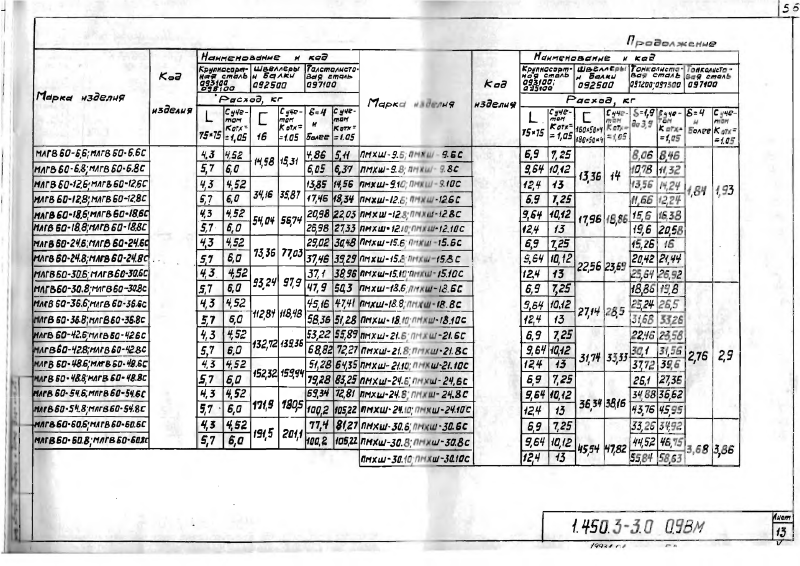 56
Продолжение
Марка изделия | Код изделия | Наименование и код
Крупносортная сталь 093100; 095100 | Швеллеры и балки 092500 | Толстолистовая сталь 097100
Расход, кг
L 75×75 | С учетом Котх=1,05 | [ 16 | С учетом Котх=1.05 | δ=4 и более | С учетом Котх=1,05
МЛГВ 60-6.6; МЛГВ 60-6.6С | 4,3 | 4,52 | 14,58 | 15,31 | 4,86 | 5,11
МЛГВ 60-6.8; МЛГВ 60-6.8С | 5,7 | 6,0 | 6,05 | 6,37
МЛГВ 60-12.6; МЛГВ 60-12.6С | 4,3 | 4,52 | 34,16 | 35,87 | 13,85 | 14,56
МЛГВ 60-12.8; МЛГВ 60-12.8С | 5,7 | 6,0 | 17,46 | 18,34
МЛГВ 60-18.6; МЛГВ 60-18.6С | 4,3 | 4.52 | 54,04 | 56,74 | 20,98 | 22,03
МЛГВ 60-18.8; МЛГВ 60-18.8С | 5,7 | 6,0 | 26,98 | 27.33
МЛГВ 60-24.6; МЛГВ 60-24.6С | 4,3 | 4,52 | 73,36 | 77,03 | 29,02 | 30,48
МЛГВ 60-24.8; МЛГВ 60-24.8С | 5,7 | 6,0 | 37,46 | 39,29
МЛГВ 60-30.6; МЛГВ 60-30.6С | 4,3 | 4,52 | 93,24 | 97,9 | 37,1 | 38,96
МЛГВ 60-30.8; МЛГВ 60-30.8С | 5,7 | 6,0 | 47,9 | 50,3
МЛГВ 60-36.6; МЛГВ 60-36.6С | 4,3 | 4,52 | 112,84 | 118,48 | 45,16 | 47,41
МЛГВ 60-36.8; МЛГВ 60-36.8С | 5,7 | 6,0 | 58,36 | 51,28
МЛГВ 60-42.6; МЛГВ 60-42.6С | 4,3 | 4,52 | 132,72 | 139,36 | 53,22 | 55,89
МЛГВ 60-42.8; МЛГВ 60-42.8С | 5,7 | 6,0 | 68,82 | 72,27
МЛГВ 60-48.6; МЛГВ 60-48.6С | 4,3 | 4,52 | 152,32 | 159,94 | 51,28 | 64,35
МЛГВ 60-48.8; МЛГВ 60-48.8С | 5,7 | 6,0 | 79,28 | 83,25
МЛГВ 60-54.6; МЛГВ 60-54.6С | 4,3 | 4,52 | 171,9 | 180,5 | 69,34 | 72,81
МЛГВ 60-54.8; МЛГВ 60-54.8С | 5,7 | 6,0 | 100,2 | 105,22
МЛГВ 60-60.6; МЛГВ 60-60.6С | 4,3 | 4,52 | 191,5 | 201,1 | 77,4 | 81,27
МЛГВ 60-60.8; МЛГВ 60-60.8С | 5,7 | 6,0 | 100,2 | 105,22
Марка изделия | Код изделия | Наименование и код
Крупносортная сталь 093100; 095100 | Швеллеры и балки 092500 | Тонколистовая сталь 097200; 097500 | Толстолистовая сталь 097100
Расход, кг
L 75×75 | С учетом Котх=1,05 | [ 160×50×4 180×50×4 | С учетом Котх=1,05 | δ=1,9 до 3,9 | С учетом Котх=1.05 | δ=4 и более | С учетом Котх=1.05
ПМХШ-9.6; ПМХШ-9.6С | 6,9 | 7,25 | 13,36 | 14 | 8,06 | 8,46 | 1,84 | 1,93
ПМХШ-9.8; ПМХШ-9.8С | 9,64 | 10,12 | 10,78 | 11,32
ПМХШ-9.10; ПМХШ-9.10С | 12,4 | 13 | 13,56 | 14,24
ПМХШ-12.6; ПМХШ-12.6С | 6,9 | 7,25 | 17,96 | 18,86 | 11,66 | 12,24
ПМХШ-12.8; ПМХШ-12.8С | 9,64 | 10,12 | 15,6 | 16,38
ПМХШ-12.10; ПМХШ-12.10С | 12.4 | 13 | 19,6 | 20,58
ПМХШ-15.6; ПМХШ-15.6С | 6,9 | 7,25 | 22,56 | 23,69 | 15.26 | 16
ПМХШ-15.8; ПМХШ-15.8С | 9,64 | 10,12 | 20,42 | 21,44
ПМХШ-15.10; ПМХШ-15.10С | 12,4 | 13 | 25,64 | 26,92
ПМХШ-18.6; ПМХШ-18.6С | 6,9 | 7,25 | 27,14 | 28,5 | 18,86 | 19,8 | 2,76 | 2,9
ПМХШ-18.8; ПМХШ-18.8С | 9,64 | 10,12 | 25,24 | 26,5
ПМХШ-18.10; ПМХШ-18.10С | 12,4 | 13 | 31,68 | 33,26
ПМХШ-21.6; ПМХШ-21.6С | 6,9 | 7,25 | 31,74 | 33,33 | 22,46 | 23,58
ПМХШ-21.8; ПМХШ-21.8С | 9,64 | 10,12 | 30,1 | 31,56
ПМХШ-21.10; ПМХШ-21.10С | 12.4 | 13 | 37,72 | 39,6
ПМХШ-24.6; ПМХШ-24.6С | 6,9 | 7,25 | 36,34 | 38,16 | 26,1 | 27,36
ПМХШ-24.8; ПМХШ-24.8С | 9,64 | 10,12 | 34,88 | 36,62
ПМХШ-24.10; ПМХШ-24.10С | 12,4 | 13 | 43,76 | 45,95
ПМХШ-30.6; ПМХШ-30.6С | 6,9 | 7,25 | 45,54 | 47,82 | 33,26 | 34,92 | 3,68 | 3,86
ПМХШ-30.8; ПМХШ-30.8С | 9,64 | 10,12 | 44,52 | 46,75
ПМХШ-30.10; ПМХШ-30.10С | 12,4 | 13 | 55,84 | 58,63
1.450.3-3.0 09ВМ
Лист
13